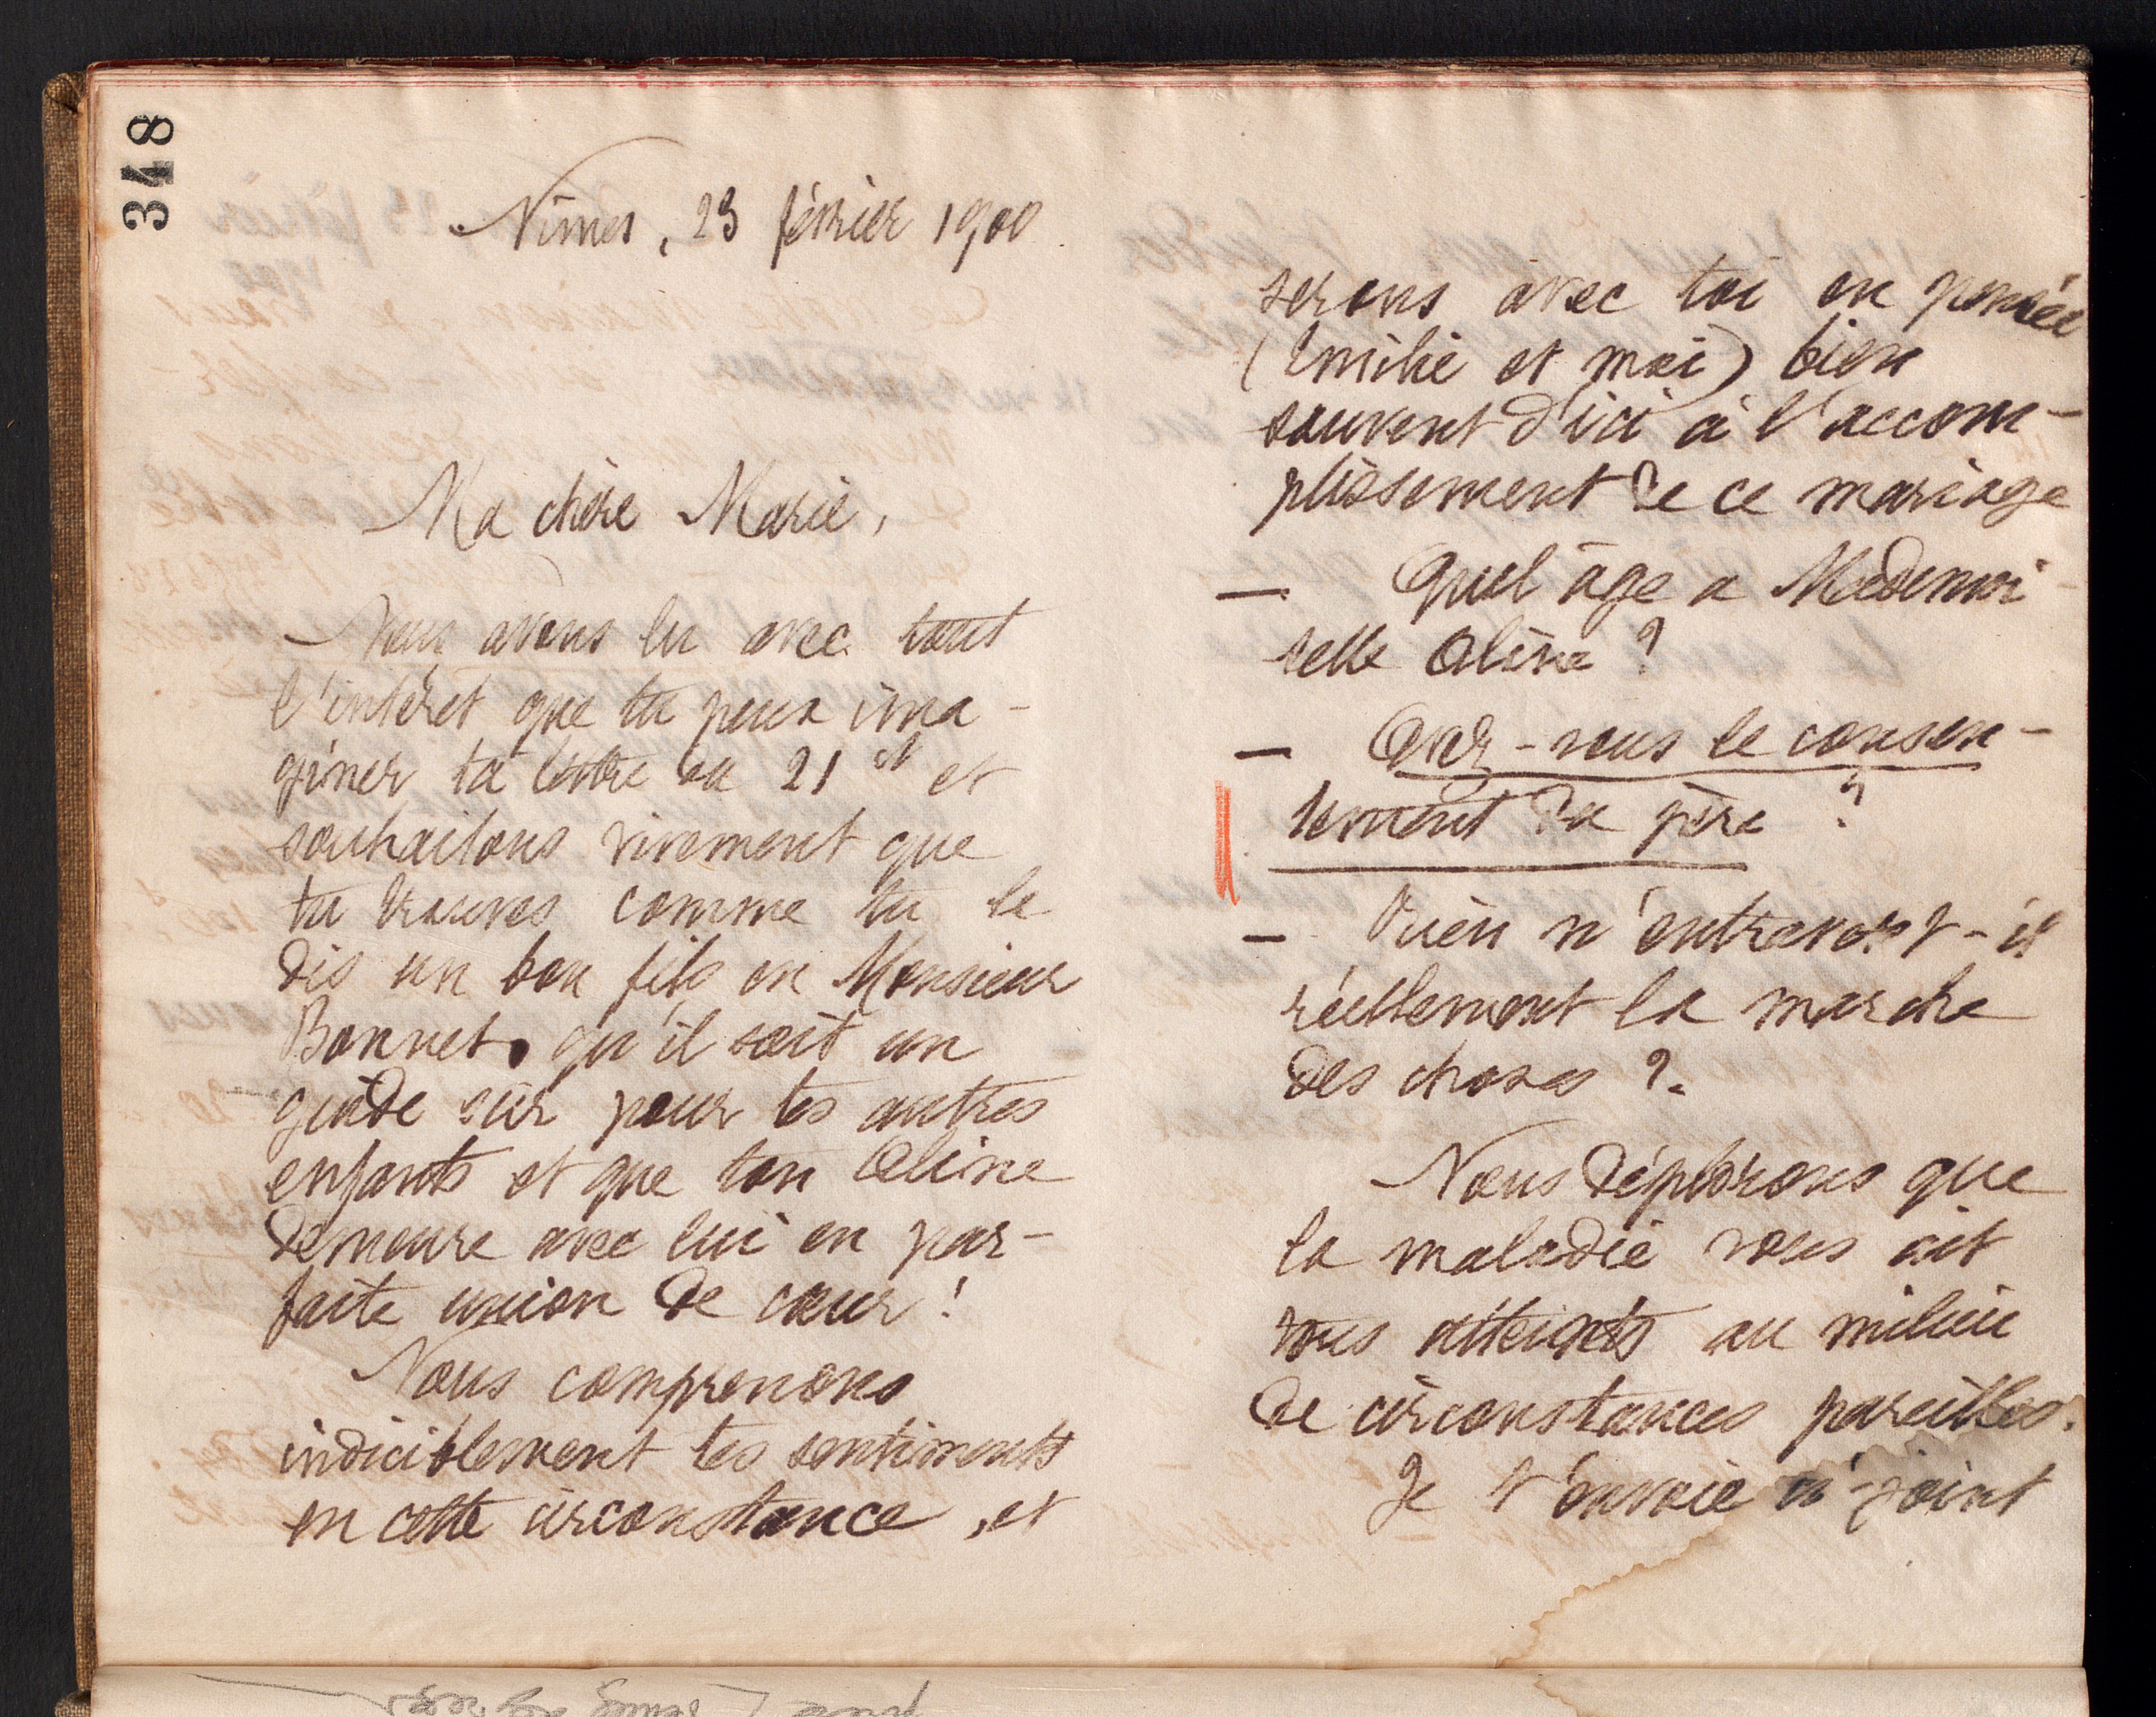 348
Nîmes, 23 février 1900
Ma chère Marie,
Nous avons lu avec tout
l'intérêt que tu peux ima-
giner ta lettre du 21 ct et
souhaitons vivement que
tu trouves comme tu le
dis un bon fils en Monsieur
Bonnet, qu'il soit un
guide sûr pour tes autres
enfants et que ton Aline
demeure avec lui en par-
faite union de cœur !
Nous comprenons
indiciblement tes sentiments
en cette circonstance, et
serons avec toi en pensée
(Emilie et moi) bien
souvent d'ici à l'accom-
plissement de ce mariage
— Quel âge a Mademoi-
selle Aline ?
— Avez-vous le consen-
tement du père ?
— Rien n'entraver-t-il
réellement la marche
des choses ?
Nous déplorons que
la maladie vous ait
tous atteints au milieu
de circonstances pareilles.
Je t'envoie ci-joint